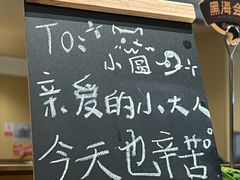 黑海会
To:
小圆
亲爱的小大人
今天也辛苦